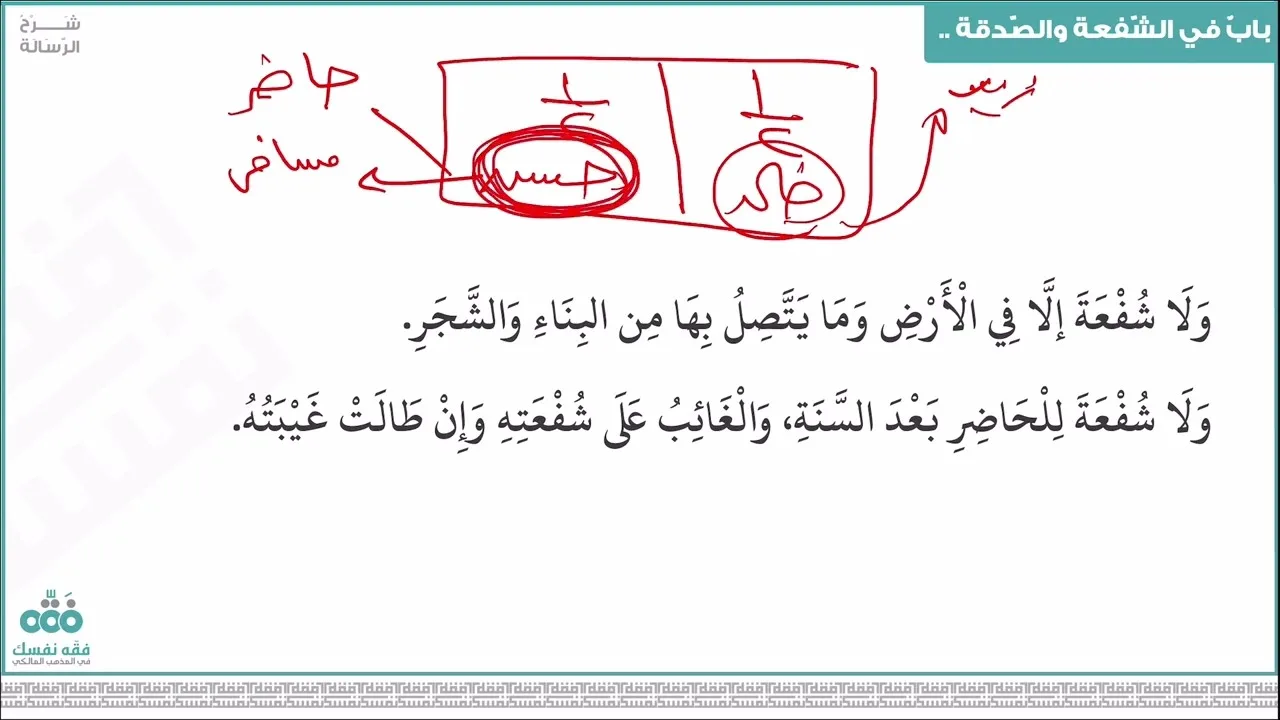 باب في الشّفعة والصّدقة ..
شَـــرْحُ
الرِّسَالَة
حاضر
مسافر
١
٢
١
٢
حسن
وَلَا شُفْعَةَ إلَّا فِي الْأَرْضِ وَمَا يَتَّصِلُ بِهَا مِن البِنَاءِ وَالشَّجَرِ.
وَلَا شُفْعَةَ لِلْحَاضِرِ بَعْدَ السَّنَةِ، وَالْغَائِبُ عَلَى شُفْعَتِهِ وَإِنْ طَالَتْ غَيْبَتُهُ.
فقه نفسك
في المذهب المالكي